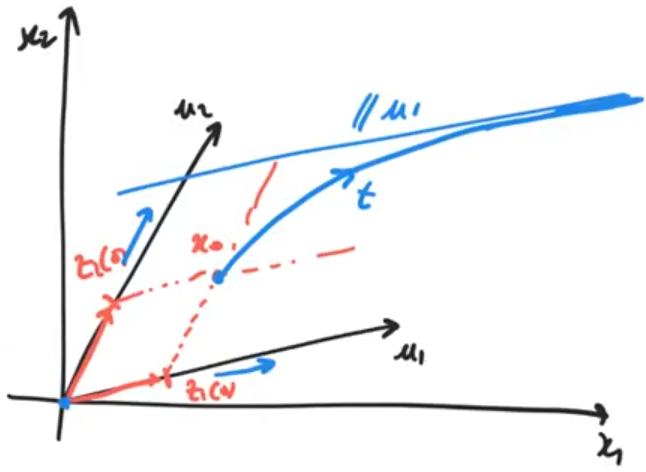 x₂
u₂
// u₁
t
x₀
z₂(0)
u₁
z₁(0)
x₁